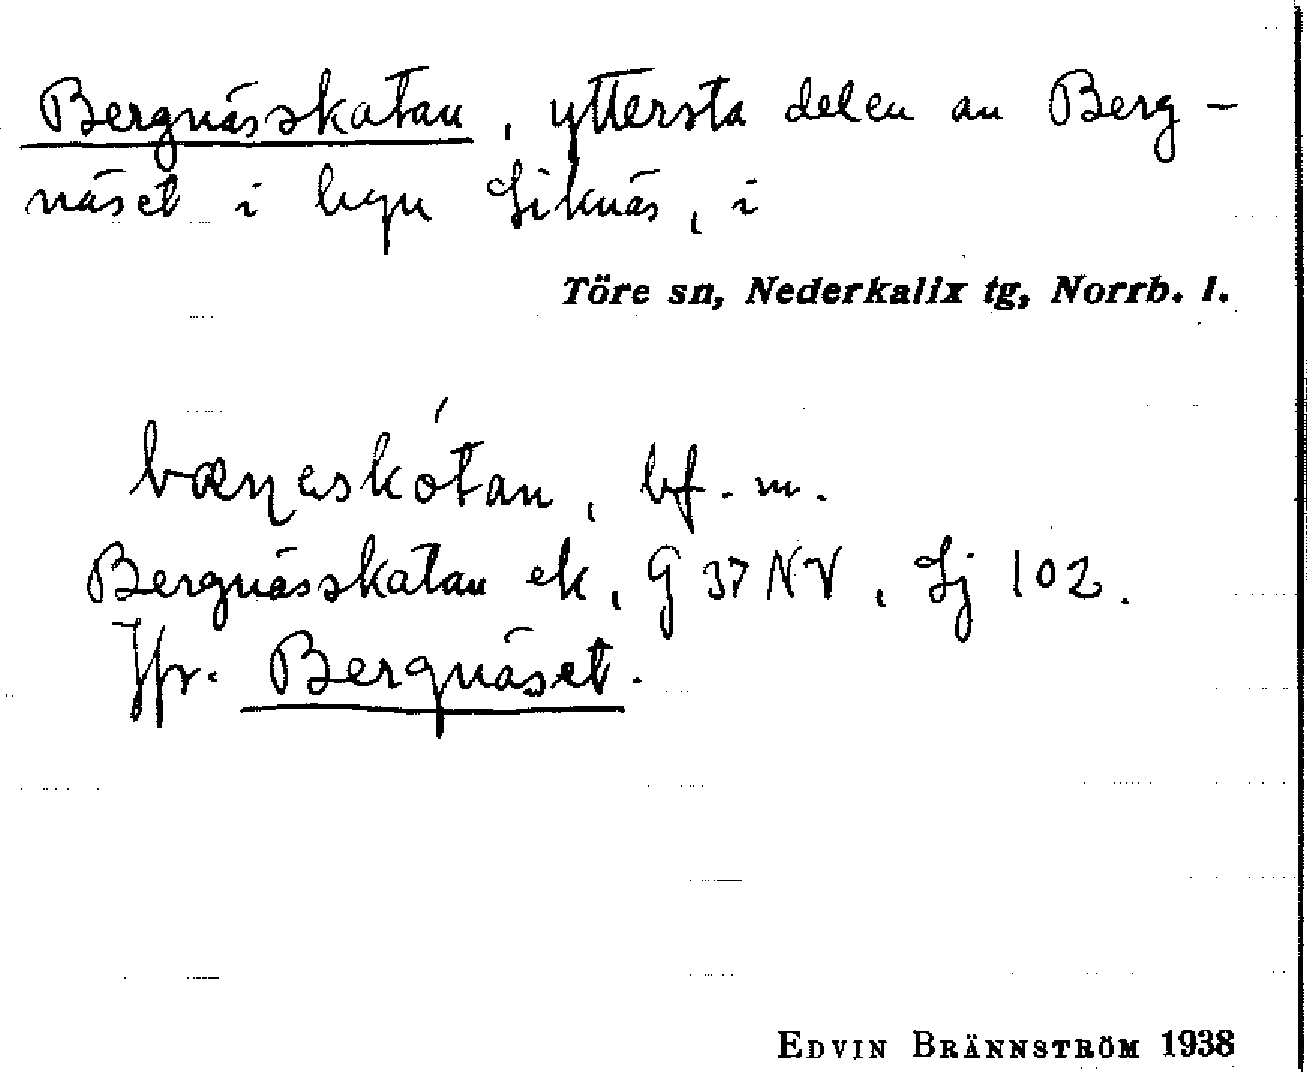 Bergnässkatan, yttersta delen av Berg-
näset i byn Siknäs, i
Töre sn, Nederkalix tg, Norrb. l.
bf. m.
Bergnässkatan ek, G 37 NV, Sj 102.
Jfr. Bergnäset.
EDVIN BRÄNNSTRÖM 1938